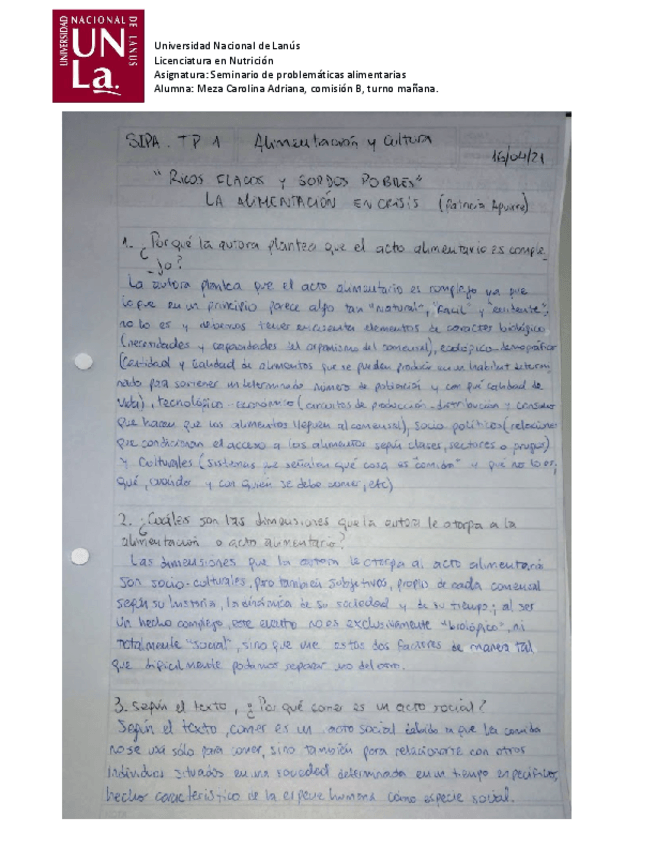 UNIVERSIDAD NACIONAL DE LANÚS
UNLa.
Universidad Nacional de Lanús
Licenciatura en Nutrición
Asignatura: Seminario de problemáticas alimentarias
Alumna: Meza Carolina Adriana, comisión B, turno mañana.
SIPA. TP 1 Alimentación y Cultura
16/04/21
"RICOS FLACOS Y GORDOS POBRES"
LA ALIMENTACIÓN EN CRISIS (Patricia Aguirre)
1. ¿Por qué la autora plantea que el acto alimentario es comple
-jo?
La autora plantea que el acto alimentario es complejo ya que
lo que en un principio parece algo tan "natural", "fácil" y "evidente",
no lo es y debemos tener en cuenta elementos de caracter biológico
(necesidades y capacidades del organismo del comensal), ecológico-demográfico
(Cantidad y calidad de alimentos que se pueden producir en un habitat determi
nado para sostener un determinado número de población y con qué calidad de
vida), tecnológico-económico (circuitos de producción-distribución y consumo
que hacen que los alimentos lleguen al comensal), socio políticos (relaciones
que condicionan el acceso a los alimentos según clases, sectores o grupos)
y culturales (sistemas que señalan qué cosa es "comida" y qué no lo es,
qué, cuándo y con quién se debe comer, etc)
2. ¿Cuáles son las dimensiones que la autora le otorga a la
alimentación o acto alimentario?
Las dimensiones que la autora le otorga al acto alimentario
son socio-culturales, pero también subjetivos, propios de cada comensal
según su historia, la dinámica de su sociedad y de su tiempo; al ser
un hecho complejo, este evento no es exclusivamente "biológico", ni
totalmente "social", sino que une estos dos factores de manera tal
que difícilmente podamos separar uno del otro.
3. Según el texto, ¿Por qué comer es un acto social?
Según el texto, comer es un acto social debido a que la comida
no se usa sólo para comer, sino también para relacionarse con otros
individuos situados en una sociedad determinada en un tiempo específico,
hecho característico de la especie humana como especie social.